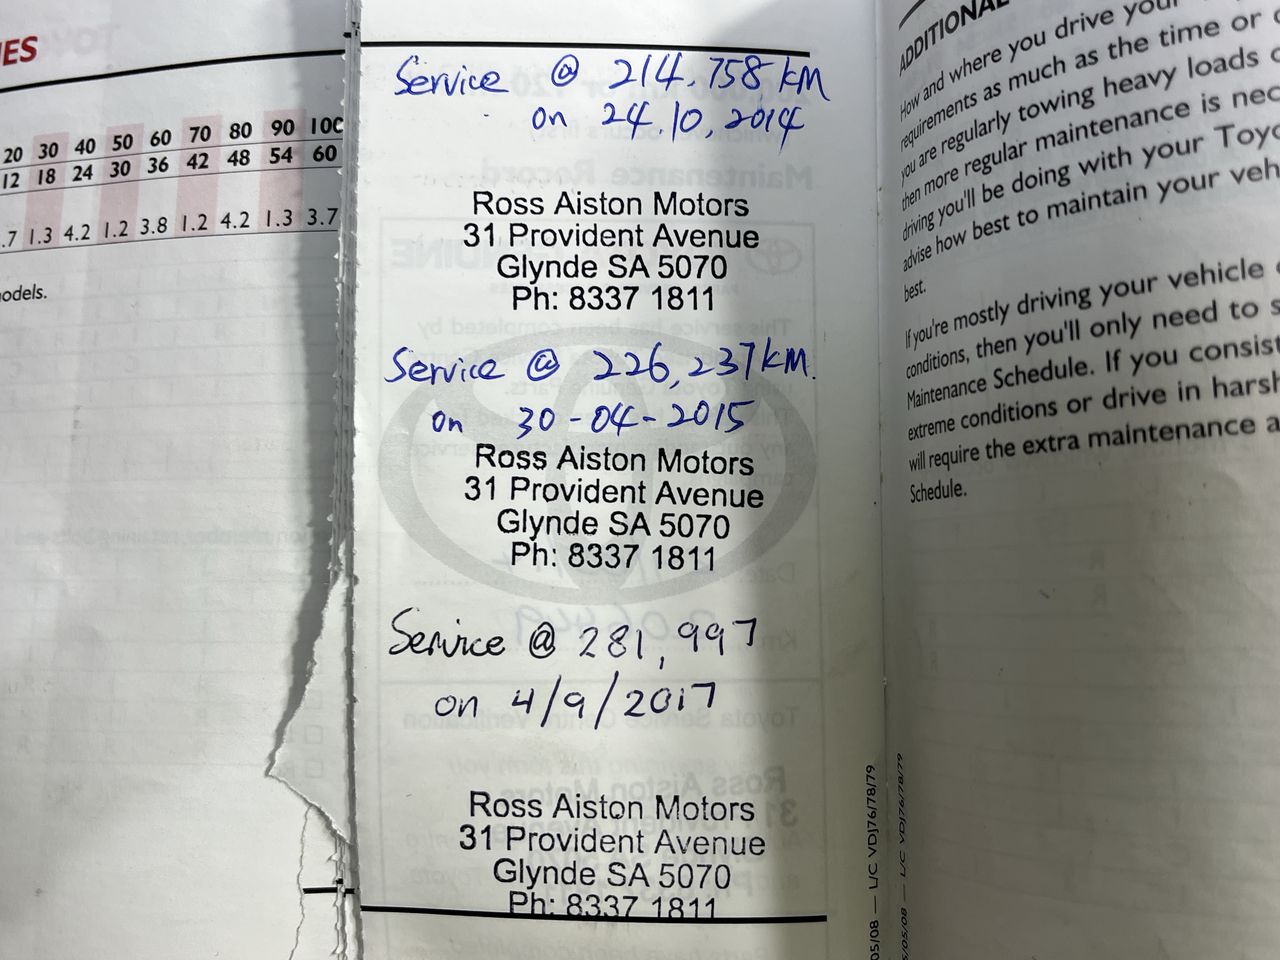 ES
20 30 40 50 60 70 80 90 100
12 18 24 30 36 42 48 54 60
.7 1.3 4.2 1.2 3.8 1.2 4.2 1.3 3.7
odels.
Service @ 214,758 km
on 24.10.2014
Ross Aiston Motors
31 Provident Avenue
Glynde SA 5070
Ph: 8337 1811
Service @ 226,237 km.
on 30-04-2015
Ross Aiston Motors
31 Provident Avenue
Glynde SA 5070
Ph: 8337 1811
Service @ 281,997
on 4/9/2017
Ross Aiston Motors
31 Provident Avenue
Glynde SA 5070
Ph: 8337 1811
ADDITIONAL
How and where you drive your
requirements as much as the time or
you are regularly towing heavy loads
then more regular maintenance is nec
driving you'll be doing with your Toyo
advise how best to maintain your veh
best.
If you're mostly driving your vehicle
conditions, then you'll only need to s
Maintenance Schedule. If you consist
extreme conditions or drive in harsh
will require the extra maintenance a
Schedule.
05/08 — L/C VDJ76/78/79
/05/08 — L/C VDJ76/78/79